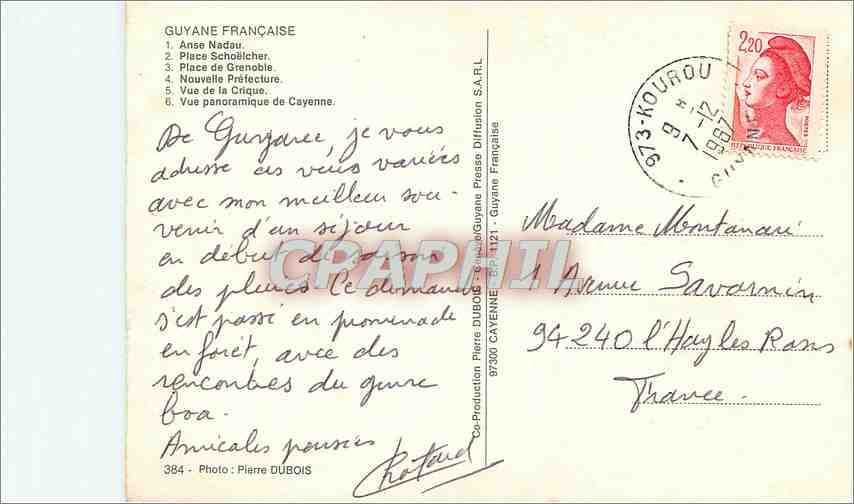 GUYANE FRANÇAISE
1. Anse Nadau.
2. Place Schoëlcher.
3. Place de Grenoble.
4. Nouvelle Préfecture.
5. Vue de la Crique.
6. Vue panoramique de Cayenne.
De Guyane, je vous
adresse ces vues variées
avec mon meilleur sou-
venir d'un séjour
en début de saison
des pluies. Ce dimanche
s'est passé en promenade
en forêt, avec des
rencontres du genre
boa.
Amicales pensées
384 - Photo : Pierre DUBOIS
Co-Production Pierre DUBOIS - /Guyane Presse Diffusion S.A.R.L
97300 CAYENNE - B.P. 1121 - Guyane Française
CPAPHIL
973-KOUROU
9 H
7-12
1987
GUYANE
2,20
POSTES
REPUBLIQUE FRANÇAISE
Madame Montanari
1 Avenue Savarnin
94240 l'Hay les Roses
France.